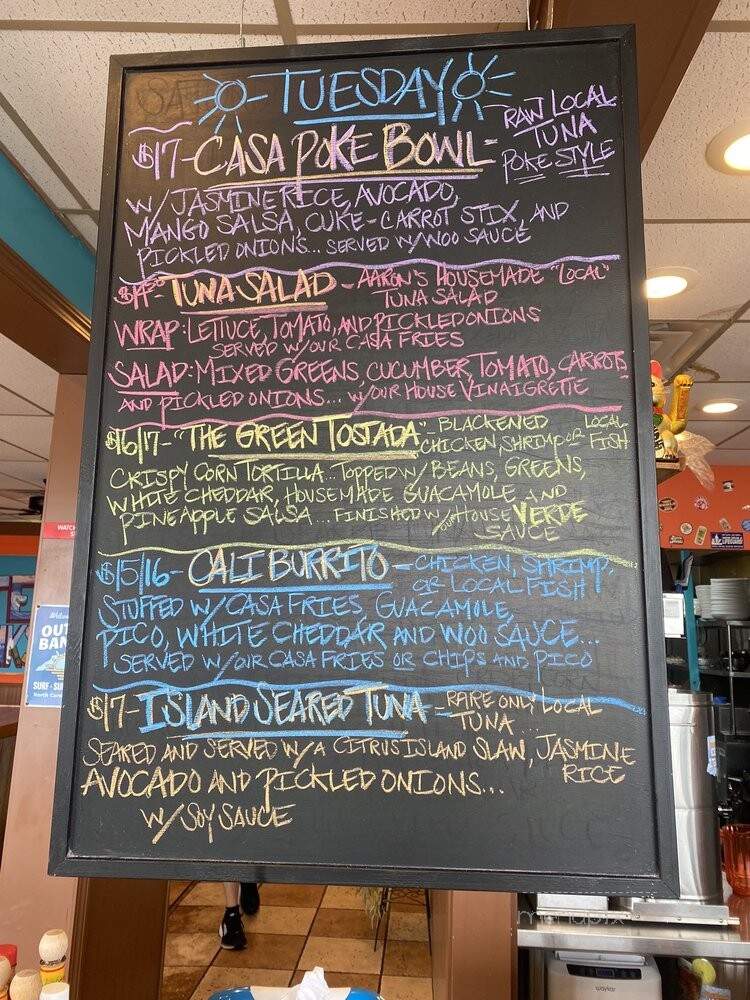 TUESDAY
$17-CASA POKE BOWL-
RAW LOCAL
TUNA
POKE STYLE
W/ JASMINE RICE, AVOCADO,
MANGO SALSA, CUKE-CARROT STIX, AND
PICKLED ONIONS... SERVED W/WOO SAUCE
TUNA SALAD - AARON'S HOUSEMADE "LOCAL"
TUNA SALAD
WRAP: LETTUCE, TOMATO, AND PICKLED ONIONS
SERVED W/OUR CASA FRIES
SALAD: MIXED GREENS, CUCUMBER, TOMATO, CARROTS
AND PICKLED ONIONS... W/OUR HOUSE VINAIGRETTE
$16/17-"THE GREEN TOSTADA"- BLACKENED
CHICKEN, SHRIMP OR LOCAL
FISH
CRISPY CORN TORTILLA... TOPPED W/ BEANS, GREENS,
WHITE CHEDDAR, HOUSEMADE GUACAMOLE AND
PINEAPPLE SALSA... FINISHED W/ OUR HOUSE VERDE
SAUCE
$15/16- CALI BURRITO - CHICKEN, SHRIMP,
OR LOCAL FISH
STUFFED W/ CASA FRIES, GUACAMOLE,
PICO, WHITE CHEDDAR AND WOO SAUCE...
SERVED W/OUR CASA FRIES OR CHIPS AND PICO
$17-ISLAND SEARED TUNA - RARE ONLY LOCAL
TUNA...
SEARED AND SERVED W/ A CITRUS ISLAND SLAW, JASMINE
RICE
AVOCADO AND PICKLED ONIONS...
W/ SOY SAUCE
WATCH
OUT
BAN
SURF · SU
North Car
waykar